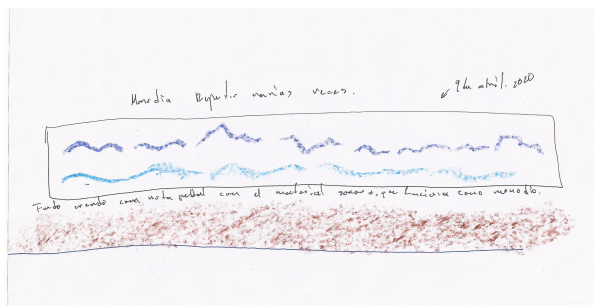 Monodia Repetir varias veces.
9 de abril. 2020
Fondo creando como nota pedal con el material sonoro, que funciona como monodia.